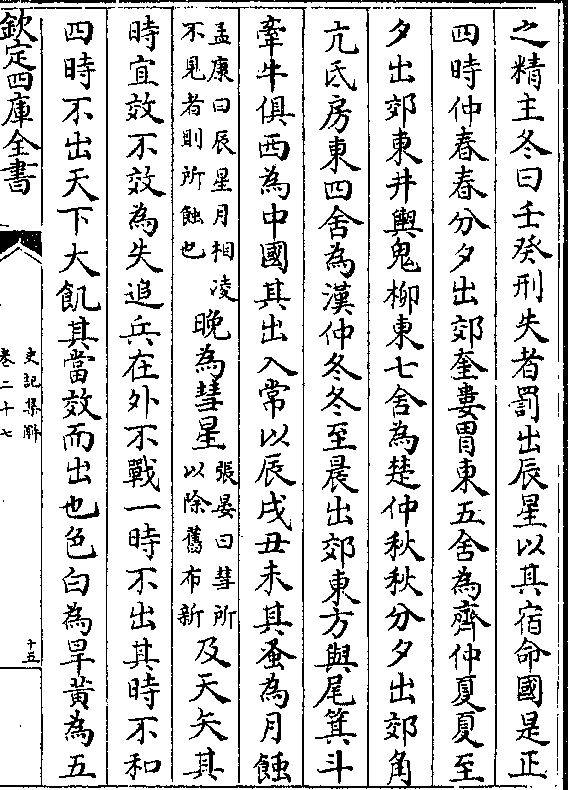 之精主冬曰壬癸刑失者罰出辰星以其宿命國是正
四時仲春春分夕出郊奎婁胃東五舍為齊仲夏夏至
夕出郊東井輿鬼柳東七舍為楚仲秋秋分夕出郊角
亢氐房東四舍為漢仲冬冬至晨出郊東方與尾箕斗
牽牛俱西為中國其出入常以辰戌丑未其蚤為月蝕
孟康曰辰星月相凌
不見者則所蝕也
晚為彗星
張晏曰彗所
以除舊布新
及天矢其
時宜效不效為失追兵在外不戰一時不出其時不和
四時不出天下大飢其當效而出也色白為旱黃為五
欽定四庫全書
史記集解
卷二十七
十五